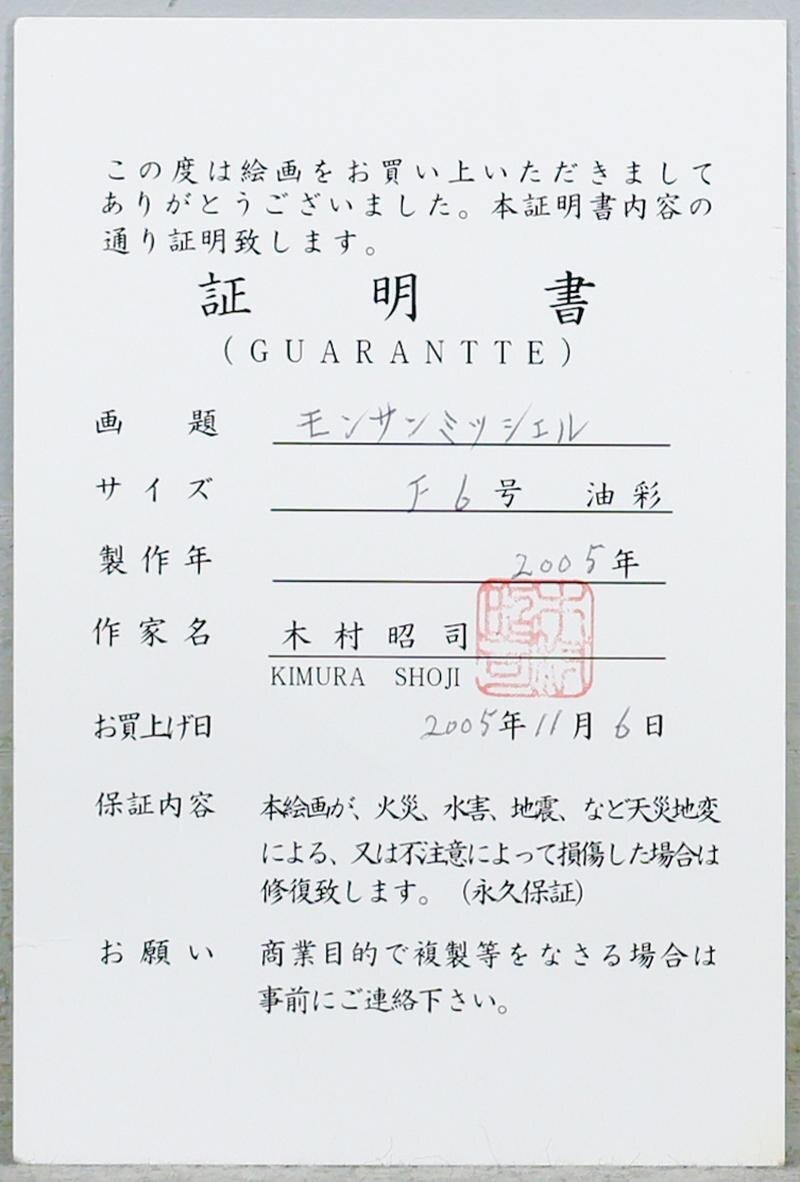 この度は絵画をお買い上いただきまして
ありがとうございました。本証明書内容の
通り証明致します。
証明書
(GUARANTTE)
画題 モンサンミッシェル
サイズ F6号 油彩
製作年 2005年
作家名 木村昭司
KIMURA SHOJI
お買上げ日 2005年11月6日
保証内容 本絵画が、火災、水害、地震、など天災地変
による、又は不注意によって損傷した場合は
修復致します。(永久保証)
お願い 商業目的で複製等をなさる場合は
事前にご連絡下さい。